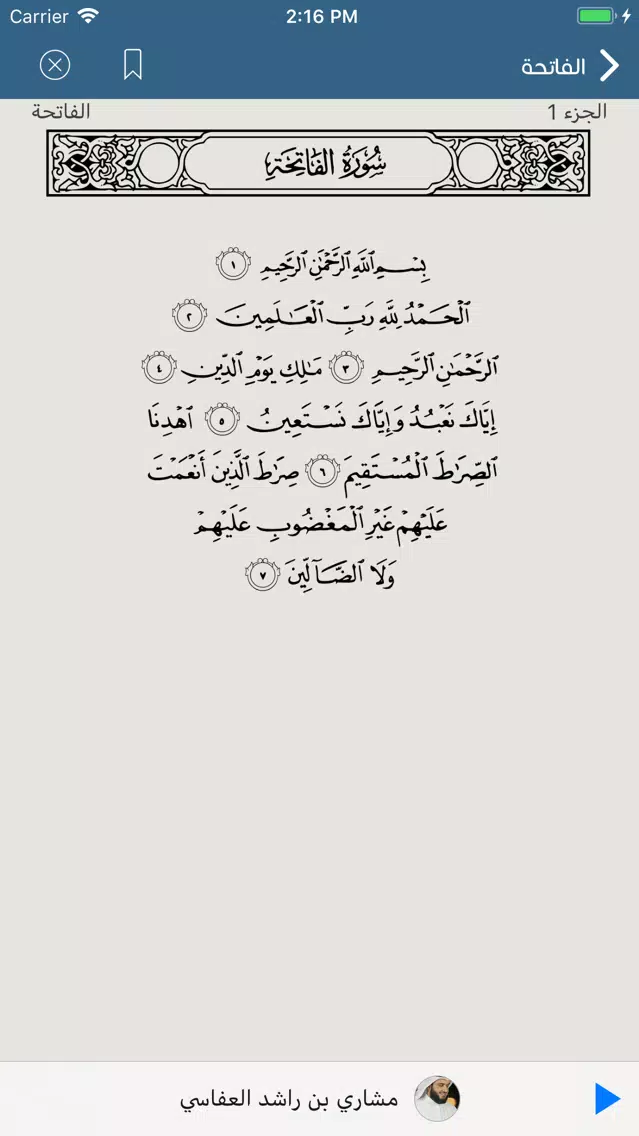 Carrier 2:16 PM
الفاتحة
الجزء 1 الفاتحة
سُورَةُ الفَاتِحَةِ
بِسْمِ ٱللَّهِ ٱلرَّحْمَٰنِ ٱلرَّحِيمِ ١
ٱلْحَمْدُ لِلَّهِ رَبِّ ٱلْعَٰلَمِينَ ٢
ٱلرَّحْمَٰنِ ٱلرَّحِيمِ ٣ مَٰلِكِ يَوْمِ ٱلدِّينِ ٤
إِيَّاكَ نَعْبُدُ وَإِيَّاكَ نَسْتَعِينُ ٥ ٱهْدِنَا
ٱلصِّرَٰطَ ٱلْمُسْتَقِيمَ ٦ صِرَٰطَ ٱلَّذِينَ أَنْعَمْتَ
عَلَيْهِمْ غَيْرِ ٱلْمَغْضُوبِ عَلَيْهِمْ
وَلَا ٱلضَّآلِّينَ ٧
مشاري بن راشد العفاسي